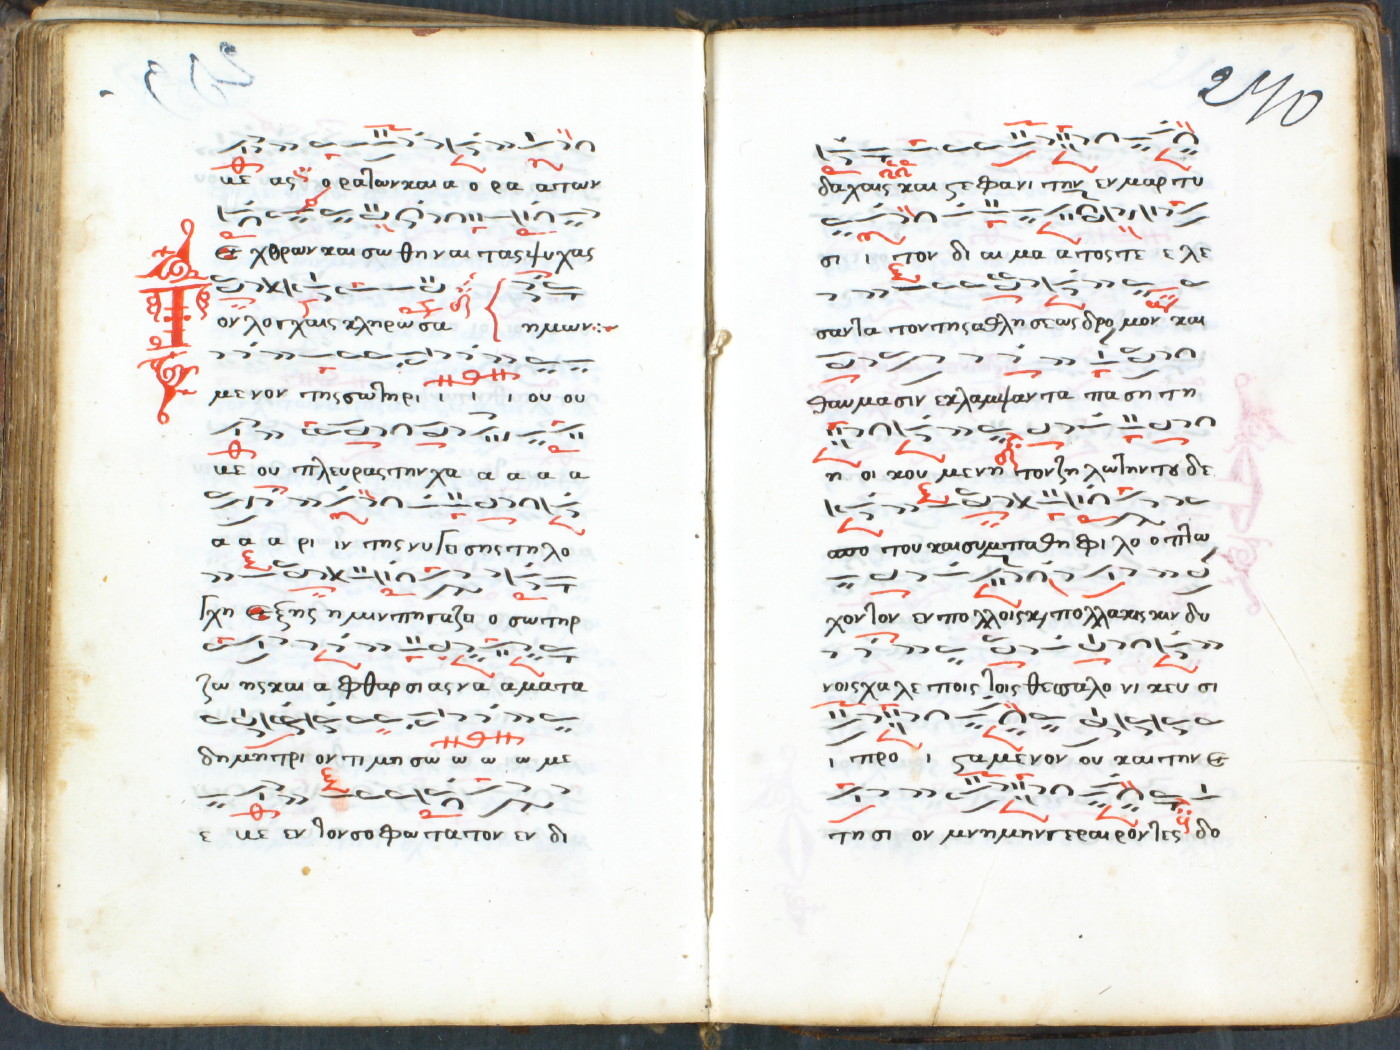 με ας ορατων και α ο ρα α των
εχθρων και σωθηναι τας ψυχας
ημων:~
Τον λογχαις κληρωσα
μενον της σωτηρι ι ι ι ου ου
με ου πλευρας την χα α α α α
α α α ρι ιν της νυξεισης τη λο
γχη εξ ης ημιν πηγαζει ο σωτηρ
ζωης και αφθαρσιας να αματα
δημητριον τιμησω ω ω ω με
ε με εν τον σοφωτατον εν δι
240
δαχαις και στεφανιτην εν μαρτυ
σι ι τον δι αιματος τε ε λε
σαντα τον της αθλησεως δρομον και
θαυμασιν εκλαμψαντα παση τη
η οικουμενη τον ζηλωτην του δε
σπο του και συμπαθη φιλο ο πτω
χον τον εν πολλοις κ, πολλακις κινδυ
νοις χαλεποις τοις θεσσαλονικευσι
ι προ ι σταμενον ου και την ε
τησιον μνημην γεραιροντες δο